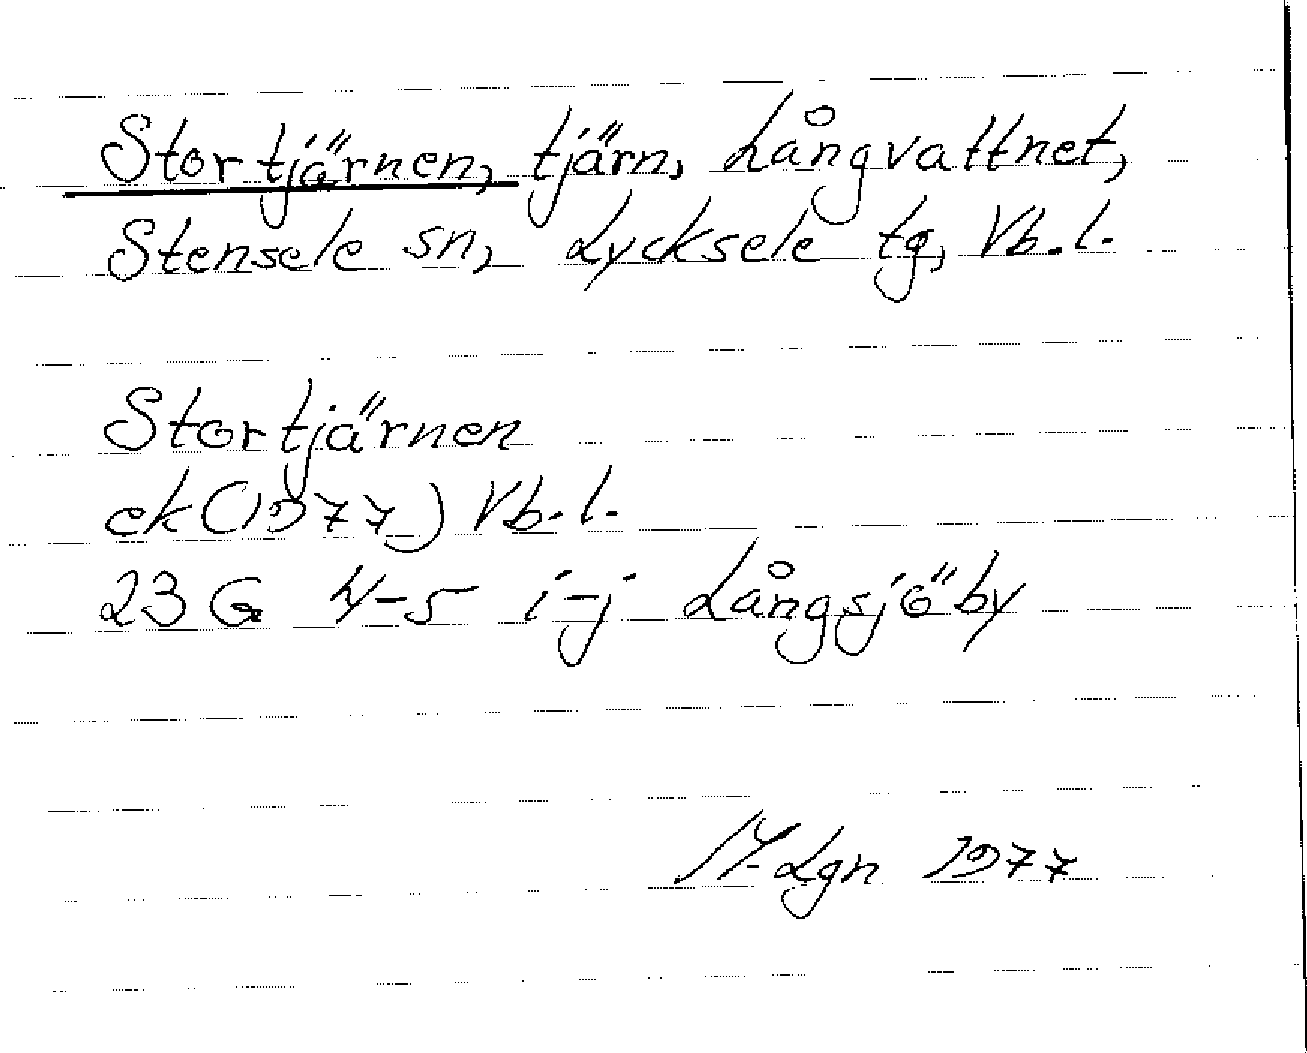 Stortjärnen, tjärn, Långvattnet,
Stensele sn, Lycksele tg, Vb.l.
Stortjärnen
ek (1977) Vb.l.
23 G 4-5 i-j Långsjöby
M. Lgn 1977